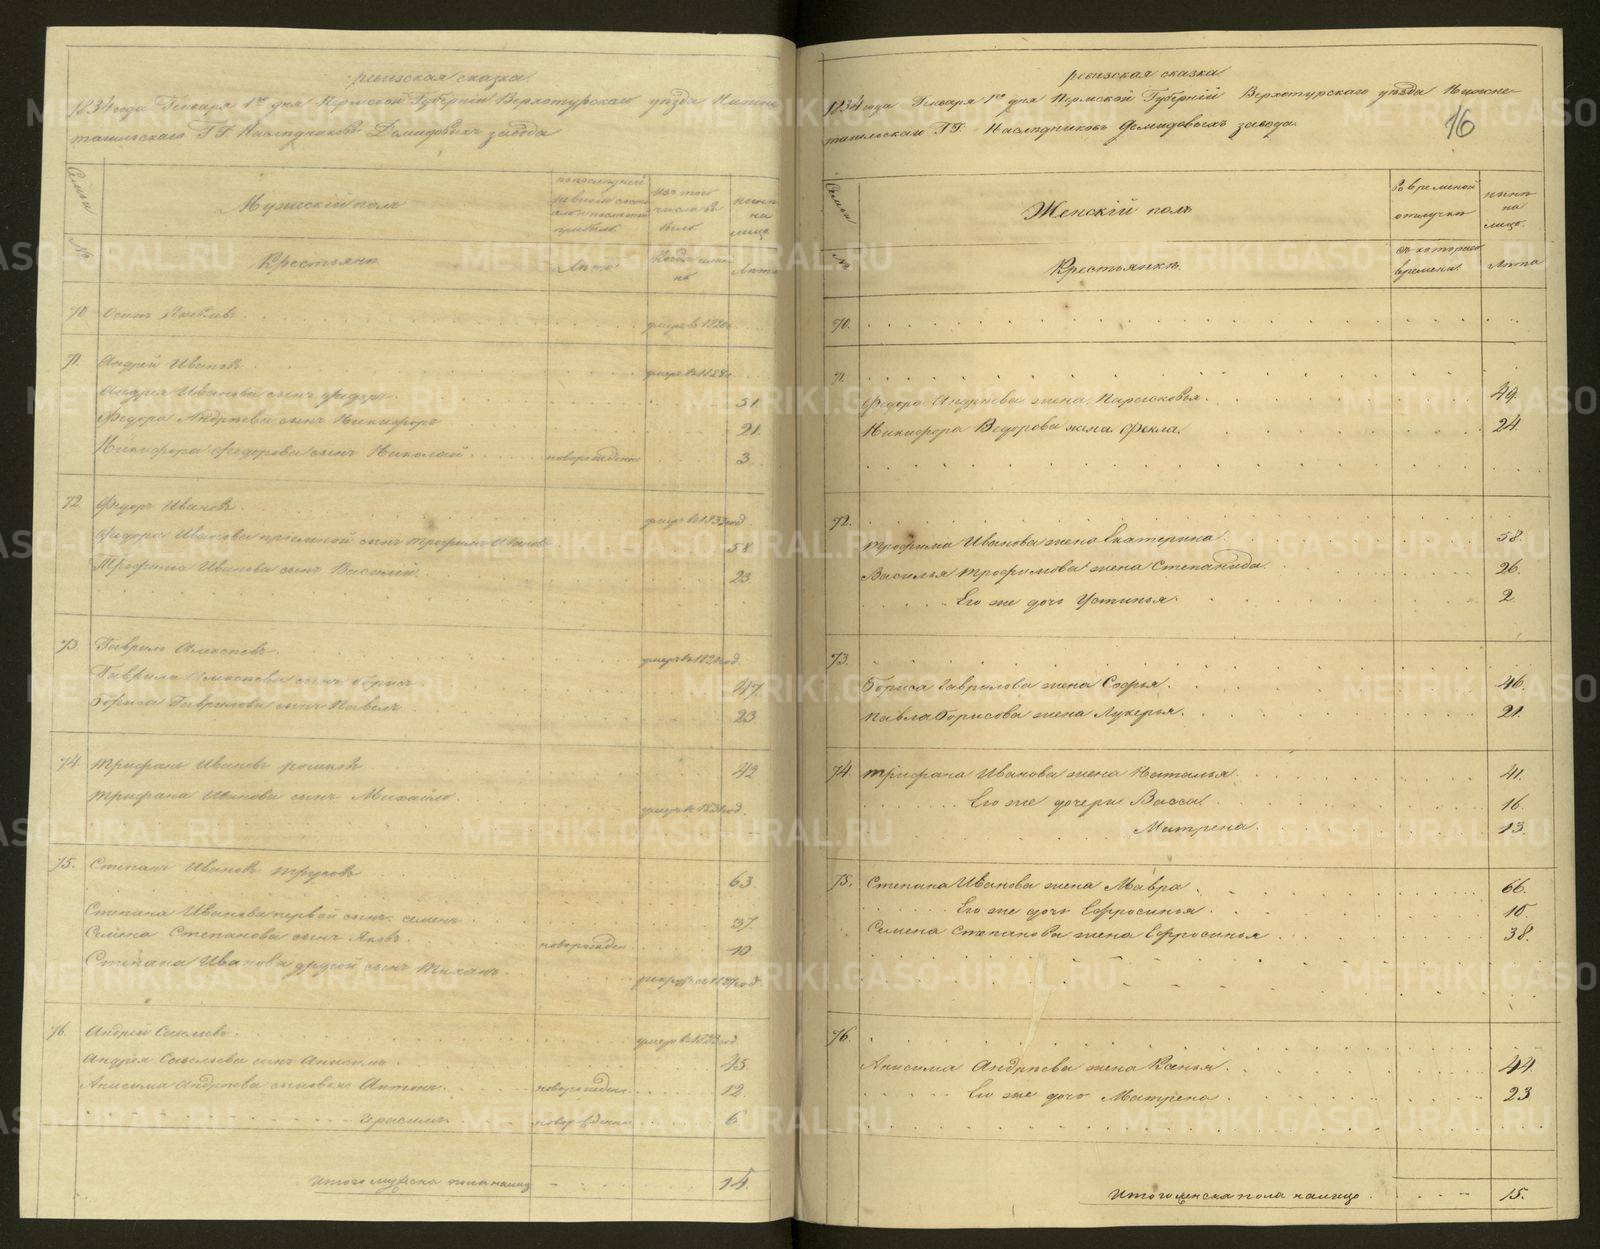 ревизская сказка
1834 года Генваря 1го дня Пермской Губерніи Верхотурскаго уѣзда Нижне
тагильскаго ГГ. Наслѣдниковъ Демидовыхъ завода
Семьи
Мужескій полъ
по последней
ревизіи состо
нынѣ
на
лицо
№
Крестьяне
Лѣта
Лѣта
70. Осипъ Яковлевъ умеръ въ
71. Андрей Ивановъ
Андрея Иванова сынъ Федоръ 51.
Федора Андрѣева сынъ Никифоръ 21.
Никифора Федорова сынъ Николай новорожденъ 3
72. Федоръ Ивановъ
Федора Иванова пріемной сынъ Трофимъ Ивановъ 58.
Трофима Иванова сынъ Василий 23
73. Гаврило Алексѣевъ
Гаврила Алексѣева сынъ Борисъ 47.
Бориса Гаврилова сынъ Павелъ 23
74. Трифанъ Ивановъ 42
Трифана Иванова сынъ Михайло
75. Степанъ Ивановъ Трусовъ 63.
Степана Иванова первой сынъ Семенъ 37.
Семена Степанова сынъ Яковъ новорожден 10
Степана Иванова другой сынъ
76. Андрей Савельевъ
Андрея Савельева сынъ Анисимъ 45.
Анисима Андрѣева сыновья Антонъ новорожден 12.
Герасимъ новорожденъ 6
Итого мужеска пола налицо 14.
ревизская сказка
1834 года Генваря 1го дня Пермской Губерніи Верхотурскаго уѣзда Нижне-
тагильскаго ГГ. Наслѣдниковъ Демидовыхъ завода.
16
Семьи
Женскій полъ
Во временной
отлучкѣ
нынѣ
на
лицо.
№
Крестьянки.
съ котораго
времени.
Лѣта
70.
71.
Федора Андрѣева жена Парасковья. 49.
Никифора Федорова жена Фекла. 24.
72.
Трофима Иванова жена Екатерина. 58.
Василья Трофимова жена Степанида. 26.
Его же дочь Устинья. 2
73.
Бориса Гаврилова жена Софья. 46.
Павла Борисова жена Лукерья. 21.
74. Трифана Иванова жена Наталья. 41.
Его же дочери Васса. 16.
Матрена. 13.
75. Степана Иванова жена Мавра. 66.
Его же дочь Ефросинья. 10.
Семена Степанова жена Ефросинья 38.
76.
Анисима Андрѣева жена Ксенья. 44.
Его же дочь Матрена. 23
Итого женска пола налицо 15.
METRIKI.GASO-URAL.RU